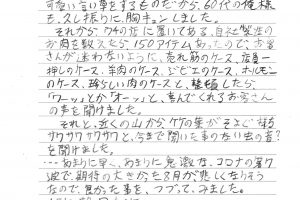 すごい言い事をするものだから、60代の俺様
も、久し振りに、胸キュンしました。
それから、ワキの店に置いてある、自社製造の
お肉を数えたら、150アイテムあったので、お客
さんが迷わないように、売れ筋のケース、店長一
押しのケース、羊肉のケース、ジビエのケース、ホルモン
のケース、珍らしい肉のケースと、整頓したら、
「ワーッ」とか「オーッ」と、喜んでくれるお客さん
の声を聞けました。
それと、近くの山から、ケヤの葉がそよぐ
サワサワサワサワと、今まで聞いた事のない虫の音?
を聞けました。
…あまりに早く、あまりに急激な、コロナの第7
波で、期待の大きかった8月が悲しくなりそう
なので、良かった事を、つづってみました。